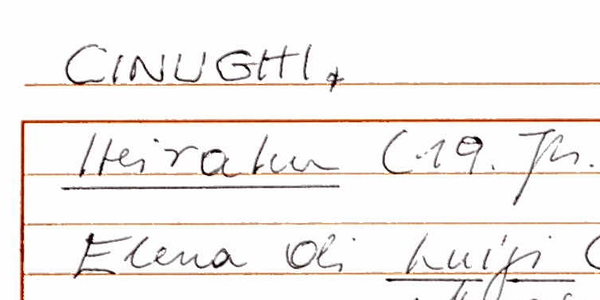 CINUGHI,
Heiraten (19. Jh.
Elena di Luigi (